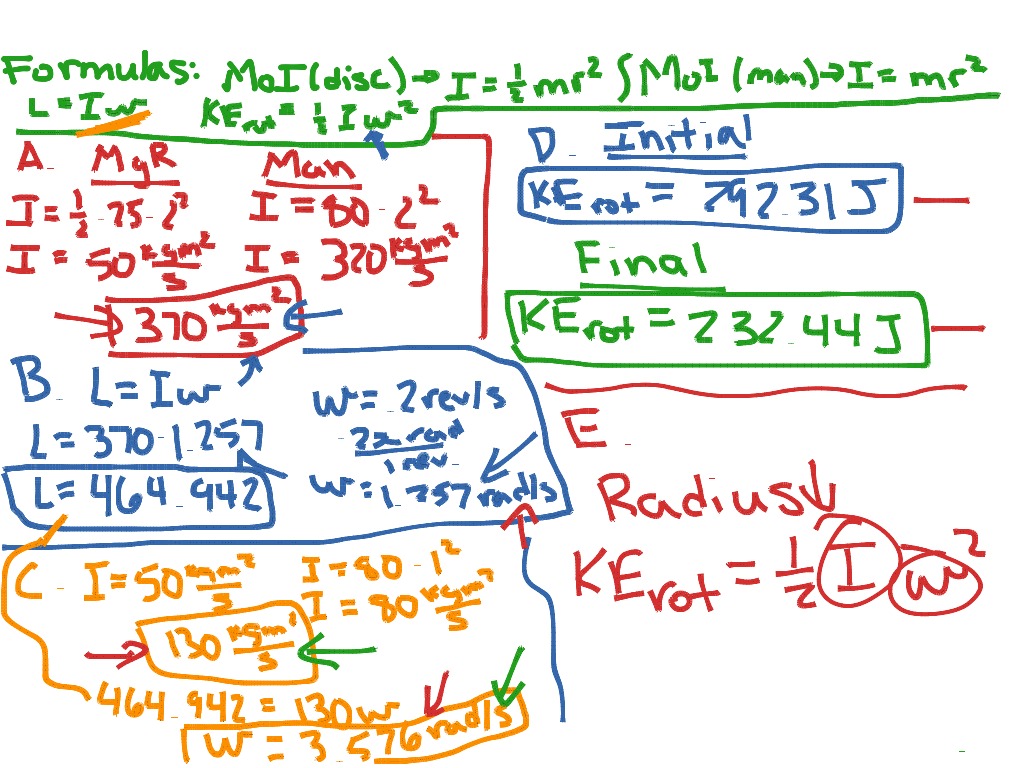 Formulas: MoI (disc) → I = 1/2 mr² ∫ MoI (man) → I = mr²
L = Iw KE rot = 1/2 I w²
A. MgR Man
I = 1/2 · 25 · 2² I = 80 · 2²
I = 50 kgm²/s I = 320 kgm²/s
370 kgm²/s
B. L = Iw
L = 370 · 1.257
L = 464.942
w = .2 rev/s
2π rad / 1 rev
w = 1.257 rad/s
C. I = 50 kgm²/s I = 80 · 1²
I = 80 kgm²/s
130 kgm²/s
464.942 = 130w
w = 3.576 rad/s
D. Initial
KE rot = 292.31 J
Final
KE rot = 232.44 J
E.
Radius ↓
KE rot = 1/2 I w²